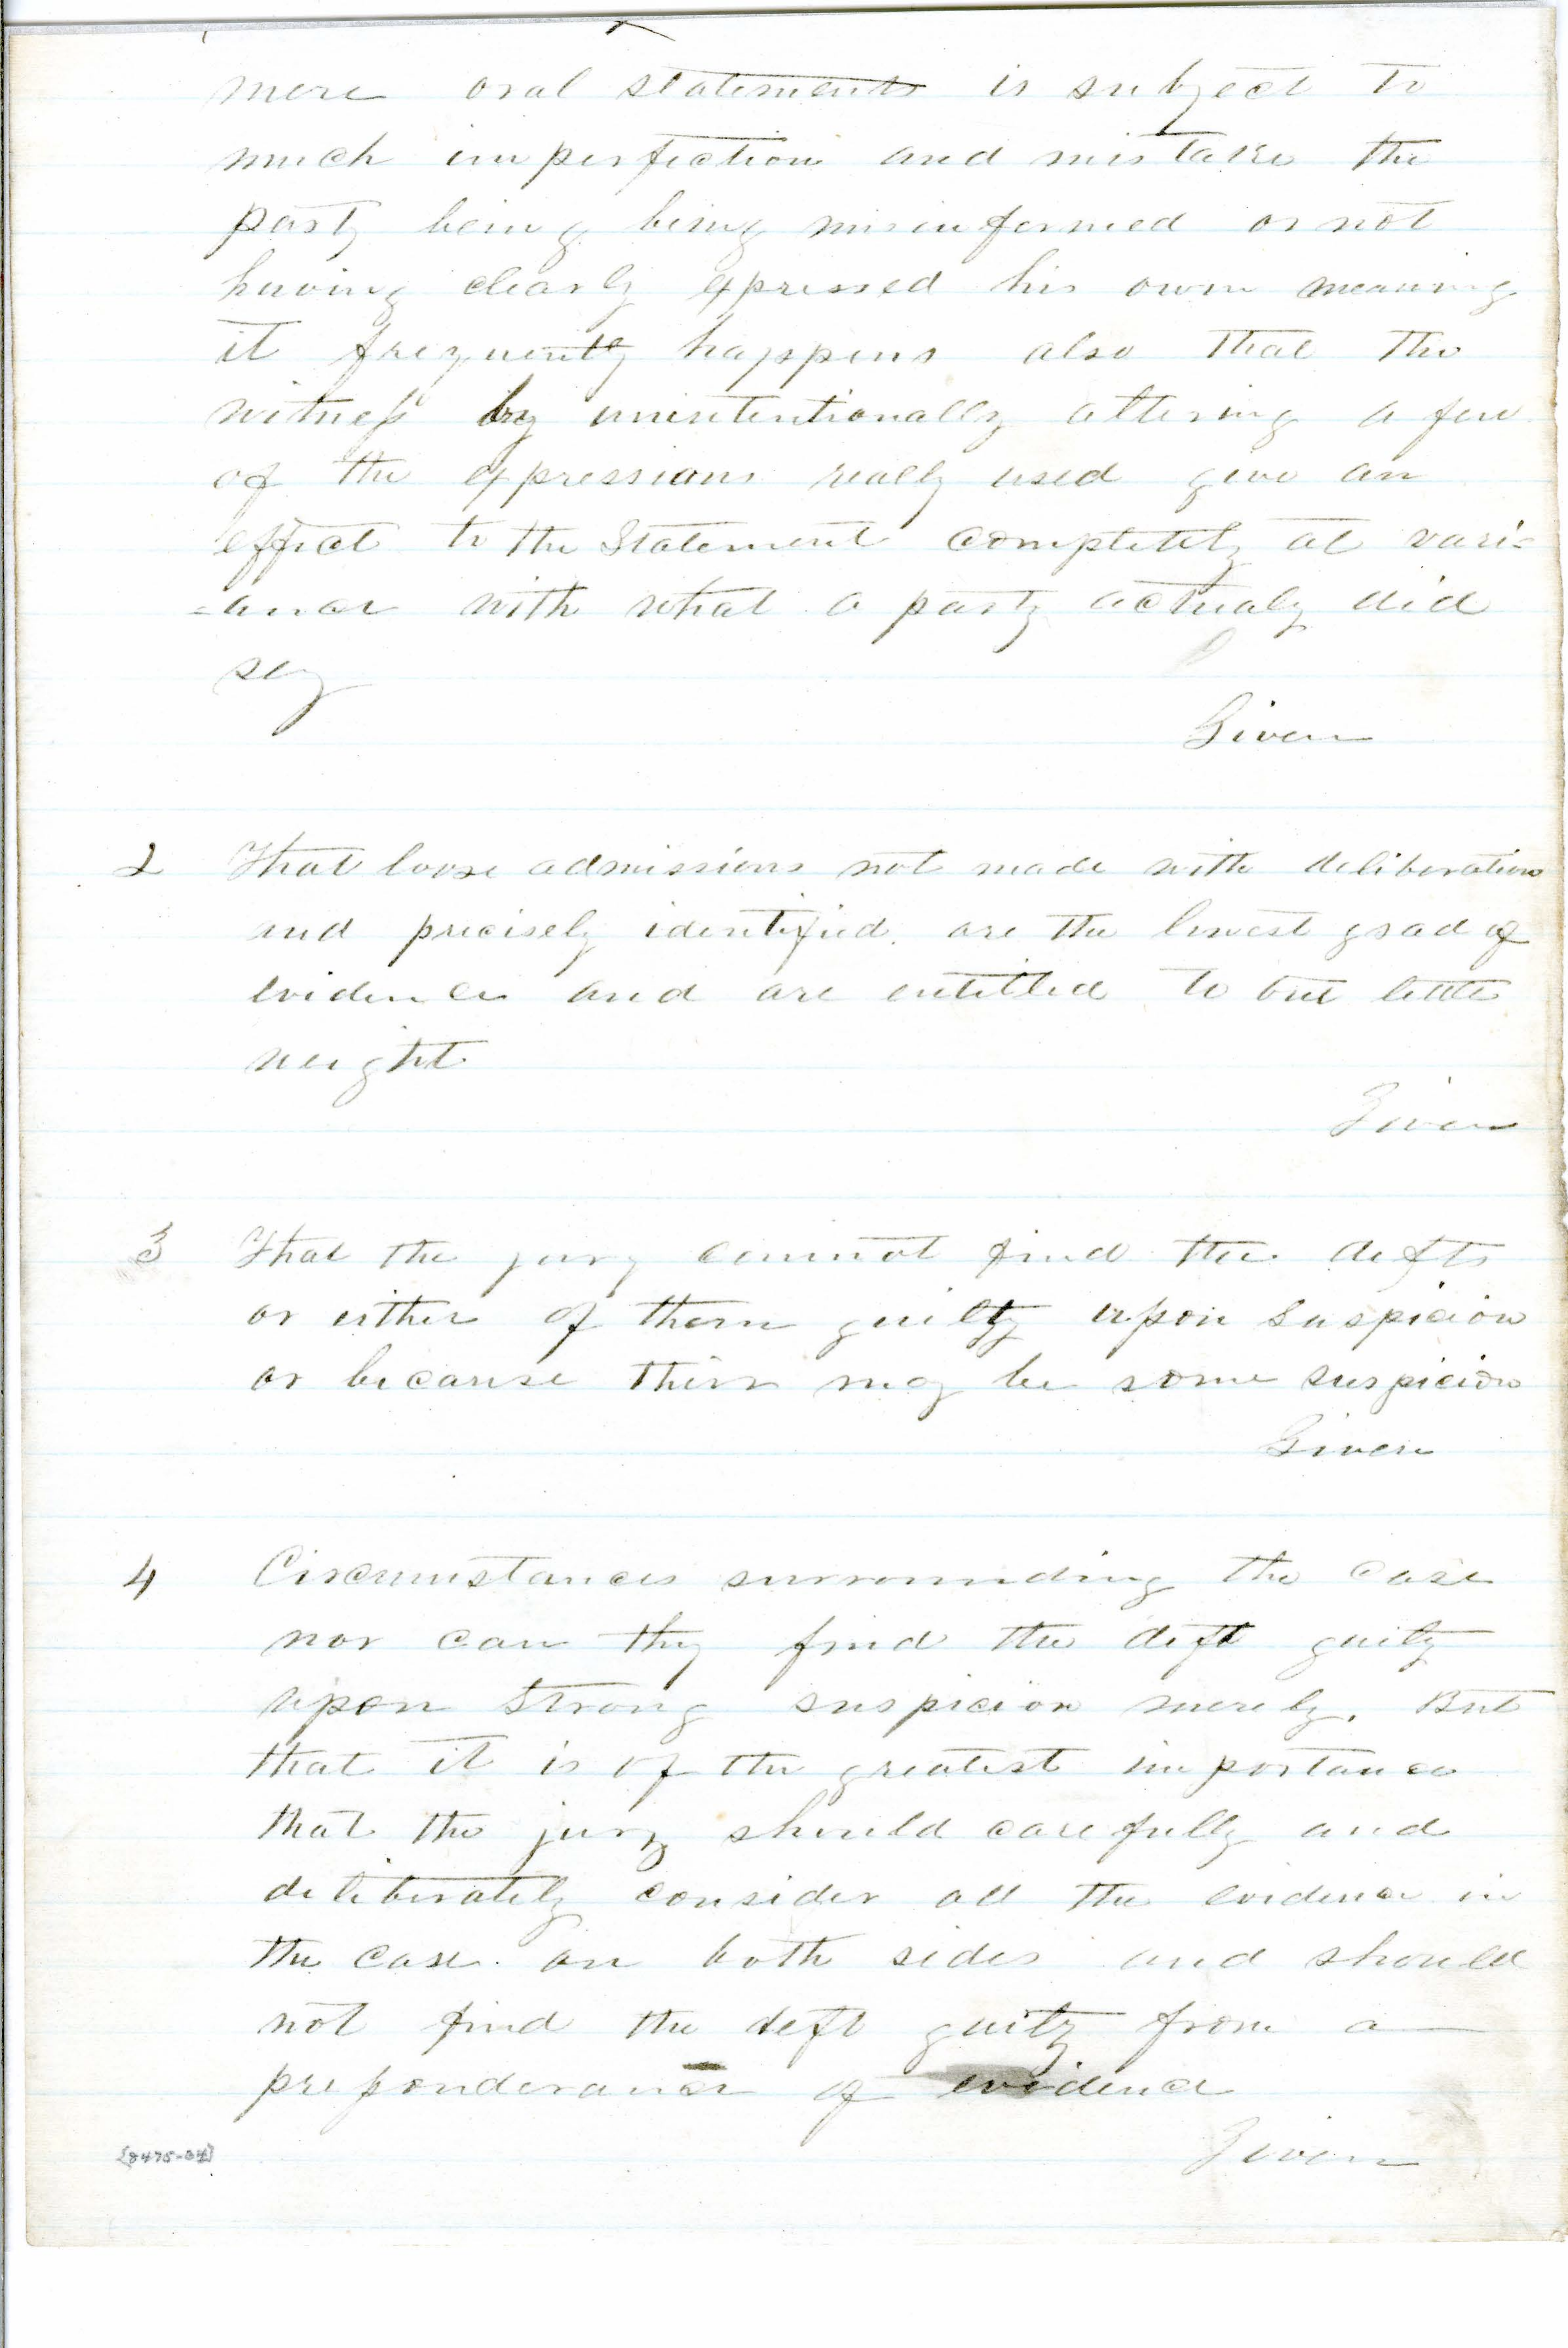 mere oral statements is subject to
much imperfection and mistake the
party being being misinformed or not
having clearly expressed his own meaning
it frequently happens also that the
witness by unintentionally altering a few
of the expressions really used give an
effect to the Statement completely at vari=
=ance with what a party actualy did
say
Given
2 That loose admissions not made with deliberation
and precisely identified. are the lowest grad of
evidence and are entitled to but little
weight
Given
3 That the jury cannot find the defts
or either of them guilty upon suspicion
or because their may be some suspicion
Given
4 Circumstances surrounding the case
nor can they find the deft guilty
upon strong suspicion merely. But
that it is of the greatest importance
that the jury should carefully and
deliberately consider all the evidence in
the case. on both sides and should
not find the deft guilty from a
preponderance of evidence
Given
[8475-34]